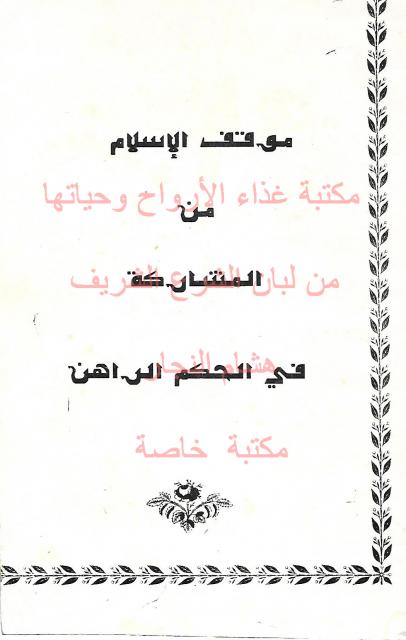 موقف الإسلام
مكتبة غذاء الأرواح وحياتها
من
من لبان الشرع الشريف
المشاركة
هشام النجار
في الحكم الراهن
مكتبة خاصة